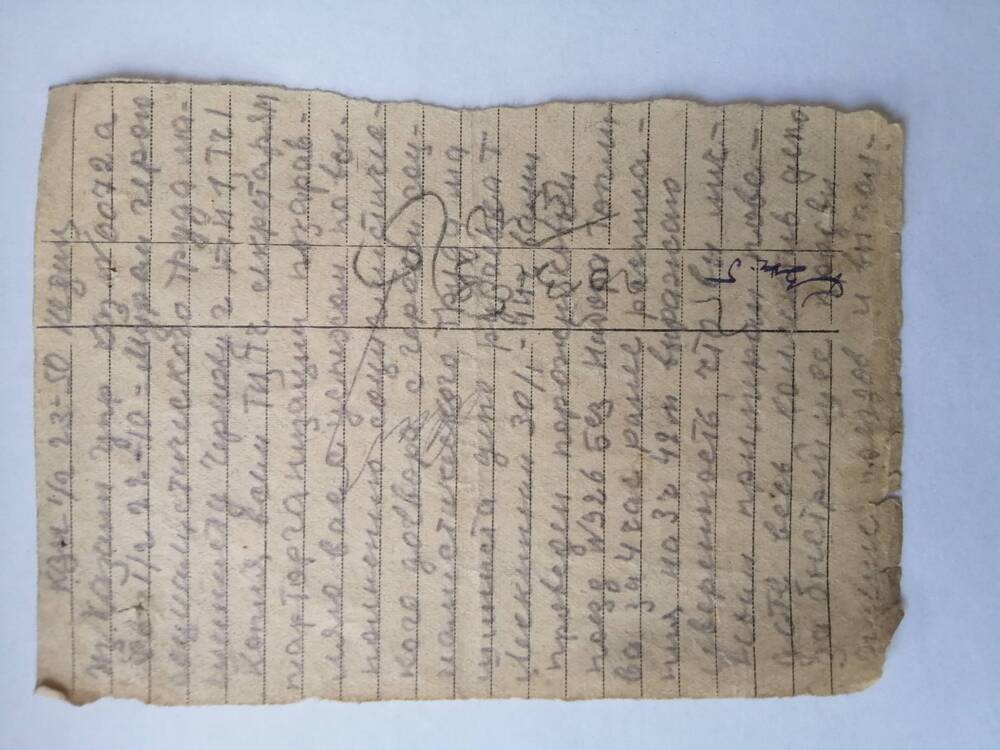 КЗН 1/2 23-50
из Казани упр КЗ №0072 а
1/2 22-10 - Муром герою
социалистического труда ма-
шинисту Чернову г ТЧ1
Копия всем ТЧ секретарям
парторганизации поздрав-
ляю вас с успехом по вы-
полнению социалистичес-
кого договора с героем соц-
иалистического труда ма
шиниста депо
30/1 - 44г вами
проведен порожняковый
поезд №926 без набора топли
ва за 4 час ранее расписа-
ния на 3ч 42м выражаю
уверенность, что вы лич-
ным примером пове-
дете весь коллектив депо
за быстрейшее продви
жение поездов и выпол-